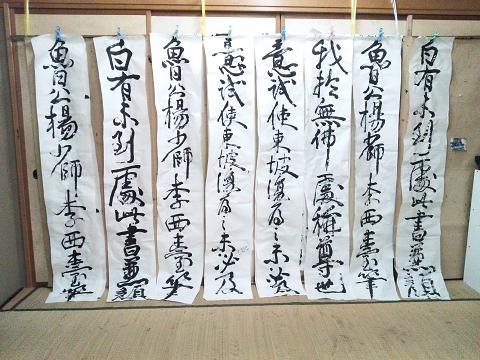 白有未到處此書兼顏
魯公楊少師李西臺筆
我於無佛處稱尊也
意試使東坡復為之未必
意試使東坡復為之未必及
魯公楊少師李西臺筆
白有未到處此書兼顏
魯公楊少師李西臺筆